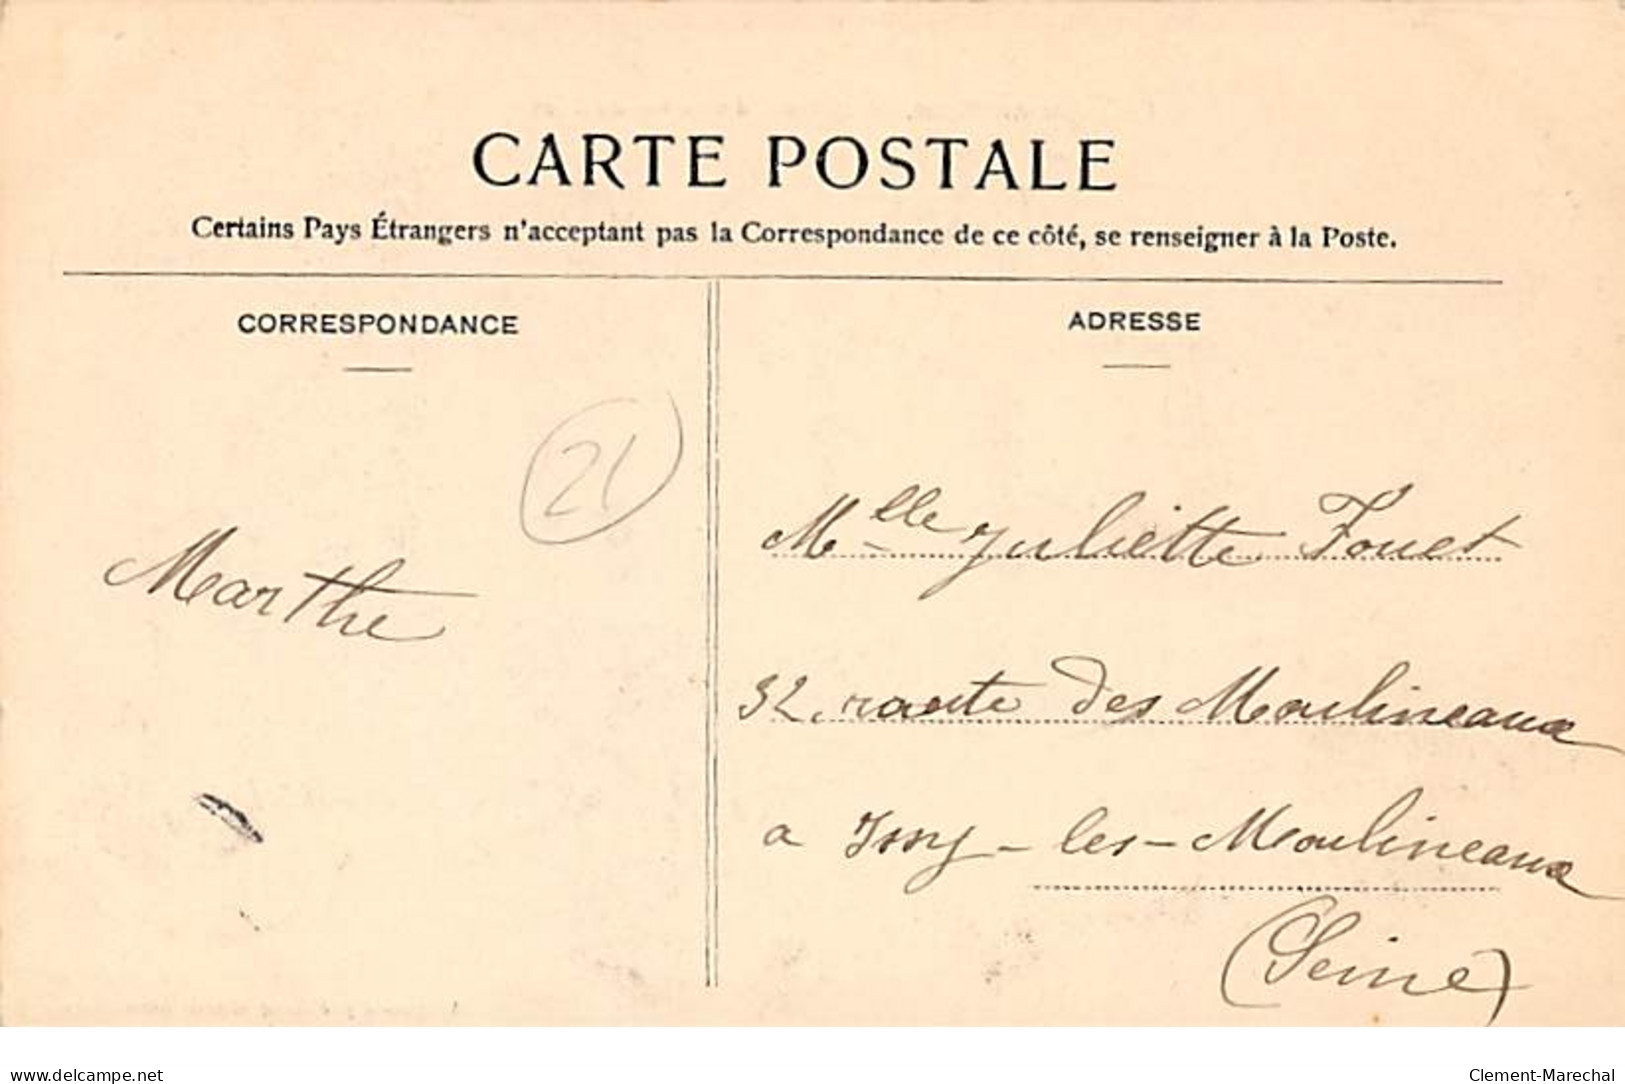 CARTE POSTALE
Certains Pays Étrangers n'acceptant pas la Correspondance de ce côté, se renseigner à la Poste.
CORRESPONDANCE
ADRESSE
21
Marthe
Mlle Juliette Fouet
32. route des Moulineaux
a Issy-les-Moulineaux
(Seine)
www.delcampe.net
Clement-Marechal